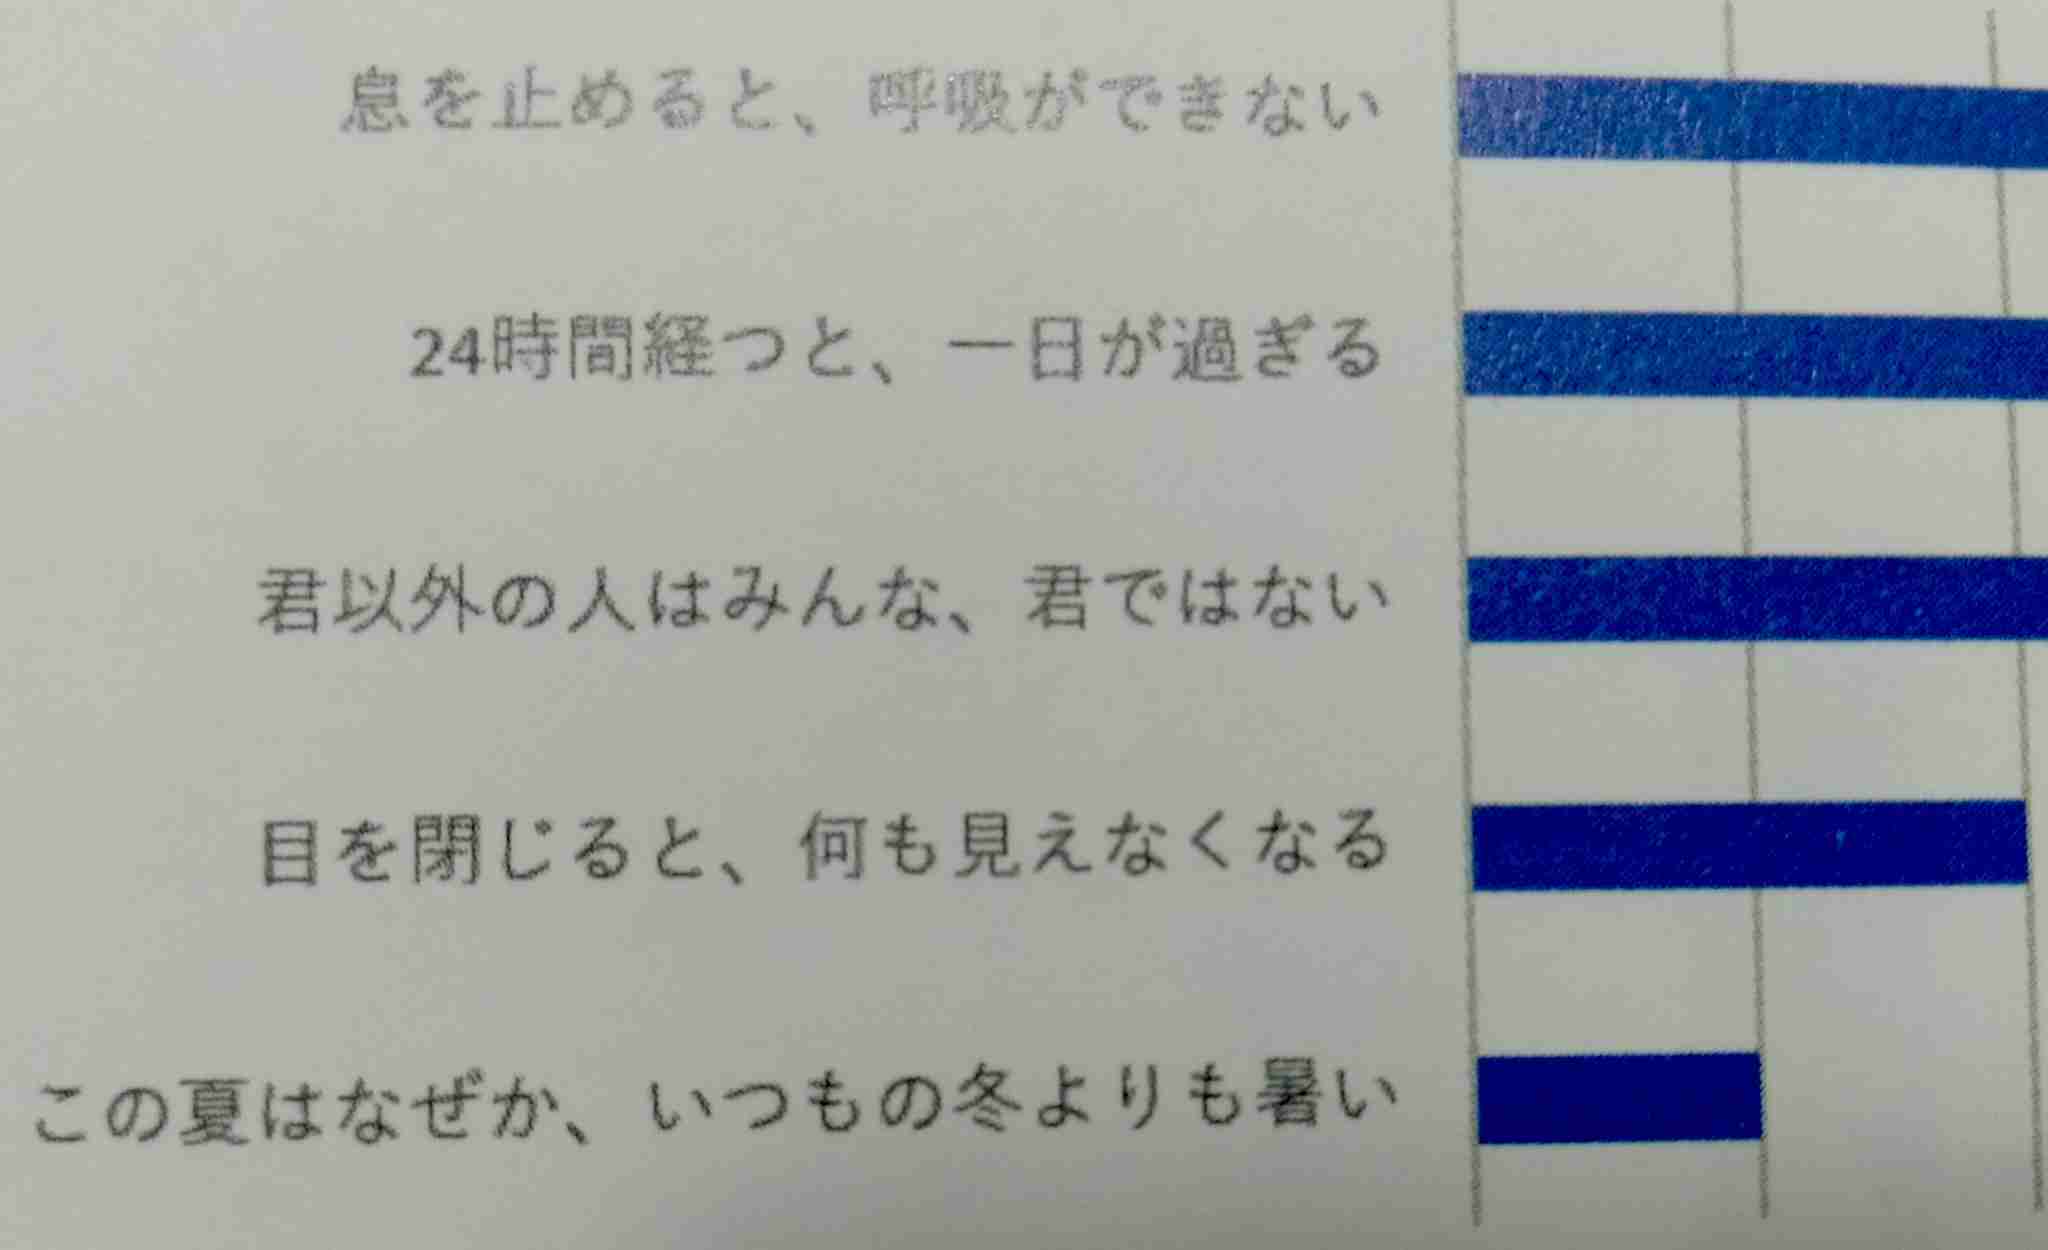 息を止めると、呼吸ができない
24時間経つと、一日が過ぎる
君以外の人はみんな、君ではない
目を閉じると、何も見えなくなる
この夏はなぜか、いつもの冬よりも暑い